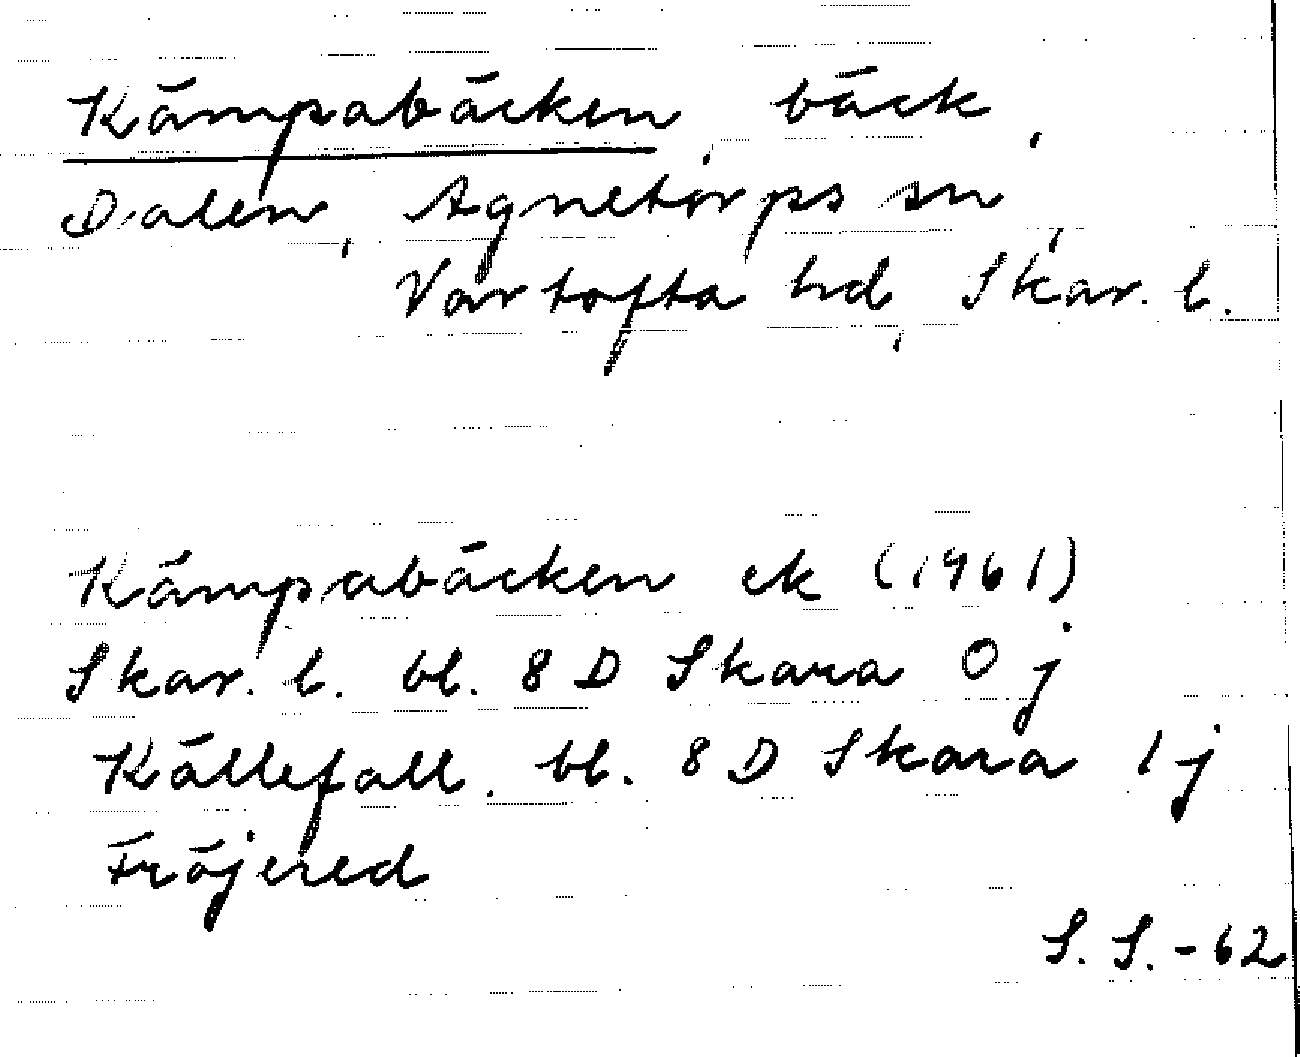 Kämpabäcken, bäck,
Dalen, Agnetorps sn,
Vartofta hd, Skar. l.
Kämpabäcken ek (1961)
Skar. l. bl. 8 D Skara 0 j
Källefall. bl. 8 D Skara 1 j
Fröjered
S. S. -62